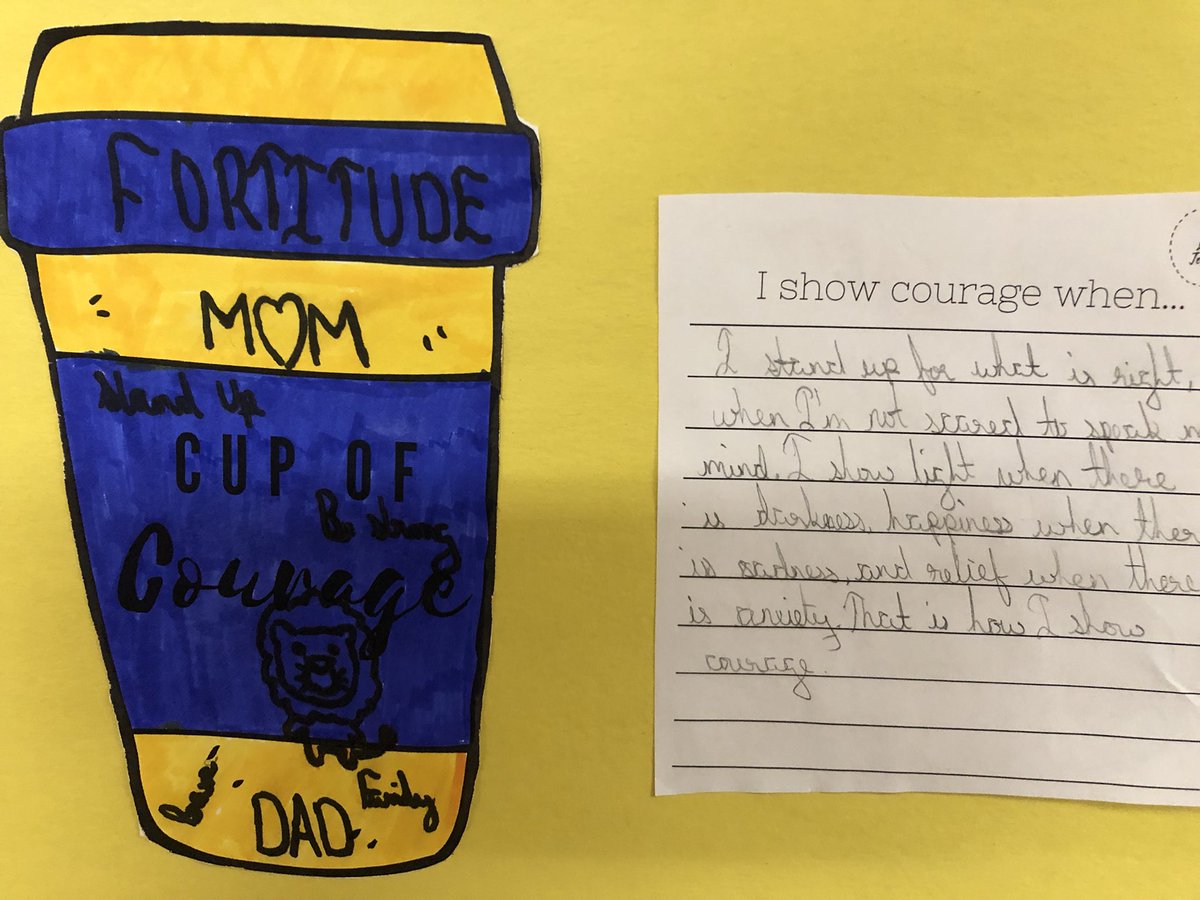 FORTITUDE
MOM
Stand Up
CUP OF
Be strong
Courage
Brave
Family
DAD
I show courage when...
I stand up for what is right,
when I'm not scared to speak m
mind. I show light when there
is darkness, happiness when ther
is sadness, and relief when there
is anxiety. That is how I show
courage.